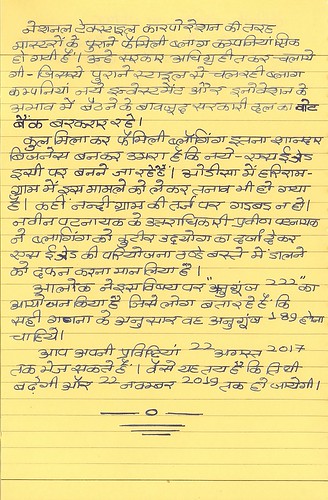 नेशनल टेक्सटाइल कारपोरेशन की तरह
मास्टरों के पुराने फैमिली ब्लाग कम्पनियां सिक
हो गयी हैं। उन्हें सरकार अधिग्रहीत कर चलाये
गी- जिससे पुराने स्टाइल से चल रही ब्लाग
कम्पनियां नये इन्वेस्टमेंट और इनोवेशन के
अभाव में बैठने के बावजूद सरकारी दल का वोट
बैंक बरकरार रहे।
कुल मिला कर फैमिली ब्लॉगिंग इतना शानदार
बिजनेस बनकर उभरा है कि नये-एस ई ज़ेड
इसी पर बनने जा रहे हैं। ओडीसा में हरिराम-
ग्राम में इस मामले को लेकर तनाव भी हो गया
है। कहीं नन्दीग्राम की तर्ज पर गड़बड़ न हो।
नवीन पटनायक के उत्तराधिकारी प्रवीण पटनायक
ने ब्लागिंग को कुटीर उद्योग का दर्जा देकर
एस ई ज़ेड की परियोजना ठण्डे बस्ते में डालने
को दफन करना मान लिया है।
आलोक ने इस विषय पर "अनुगूंज 222" का
आयोजन किया है जिसे लोग बता रहे हैं कि
सही गणना के अनुसार वह अनुगूंज 189 होना
चाहिये।
आप अपनी प्रविष्टियां 22 अगस्त 2017
तक भेज सकते हैं। वैसे यह तय है कि तिथी
बढ़ेगी और 22 नवम्बर 2019 तक हो जायेगी।